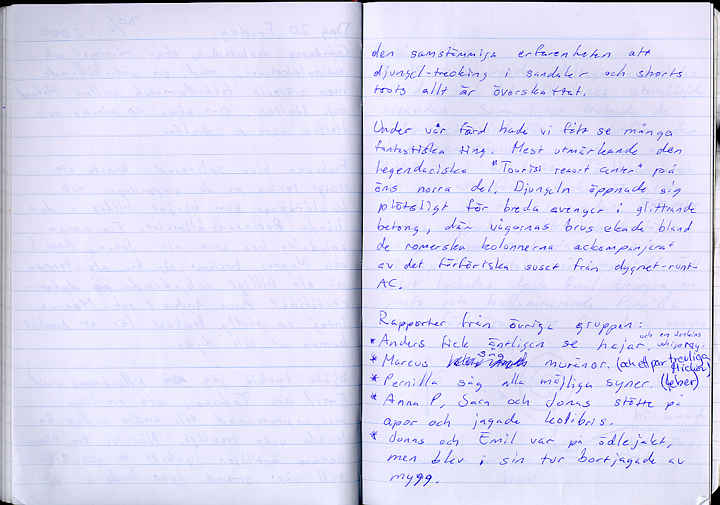 den samstämmiga erfarenheten att
djungel-trecking i sandaler och shorts
trots allt är överskattat.
Under vår färd hade vi fått se många
fantastiska ting. Mest utmärkande den
legendariska "Tourist resort center" på
öns norra del. Djungeln öppnade sig
plötsligt för breda avenyer i glittrande
betong, där vågornas brus ekade bland
de romerska kolonnerna ackompanjerat
av det förföriska suset från dygnet-runt-
AC.
Rapporter från övriga gruppen:
* Anders fick äntligen se hajar. och en
* Marcus såg muränor. (och ett par trevliga flickor)
* Pernilla såg alla möjliga syner. (feber)
* Anna P, Sara och Jonas stötte på
apor och jagade kolibris.
* Jonas och Emil var på ödlejakt,
men blev i sin tur bortjagade av
mygg.